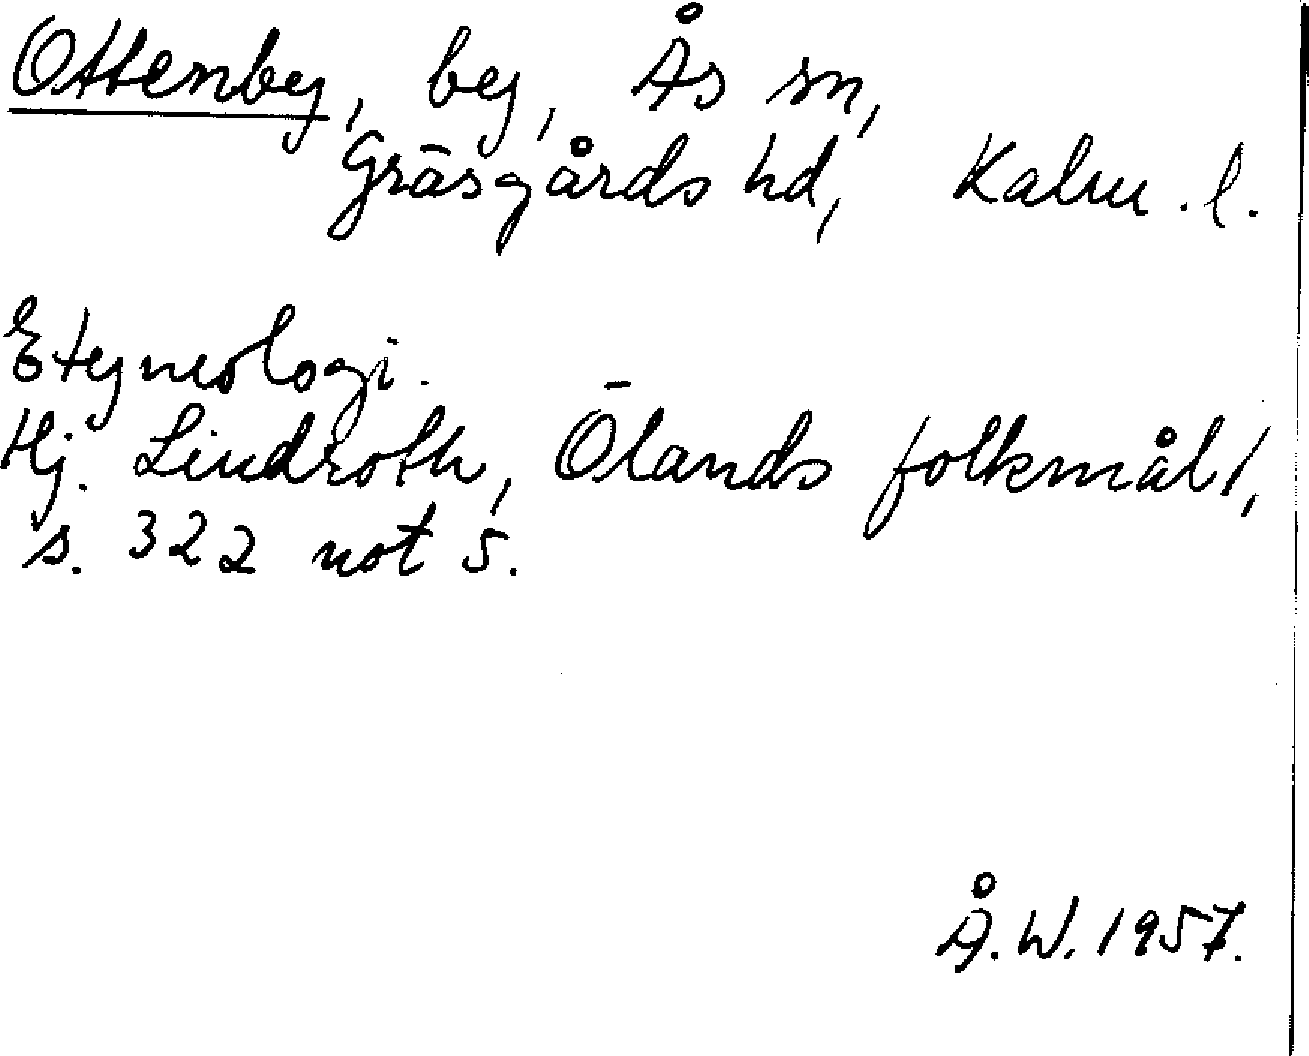 Ottenby, by, Ås sn,
Gräsgårds hd, Kalm. l.
Etymologi.
Hj. Lindroth, Ölands folkmål 1,
s. 322 not 5.
Å.W. 1957.